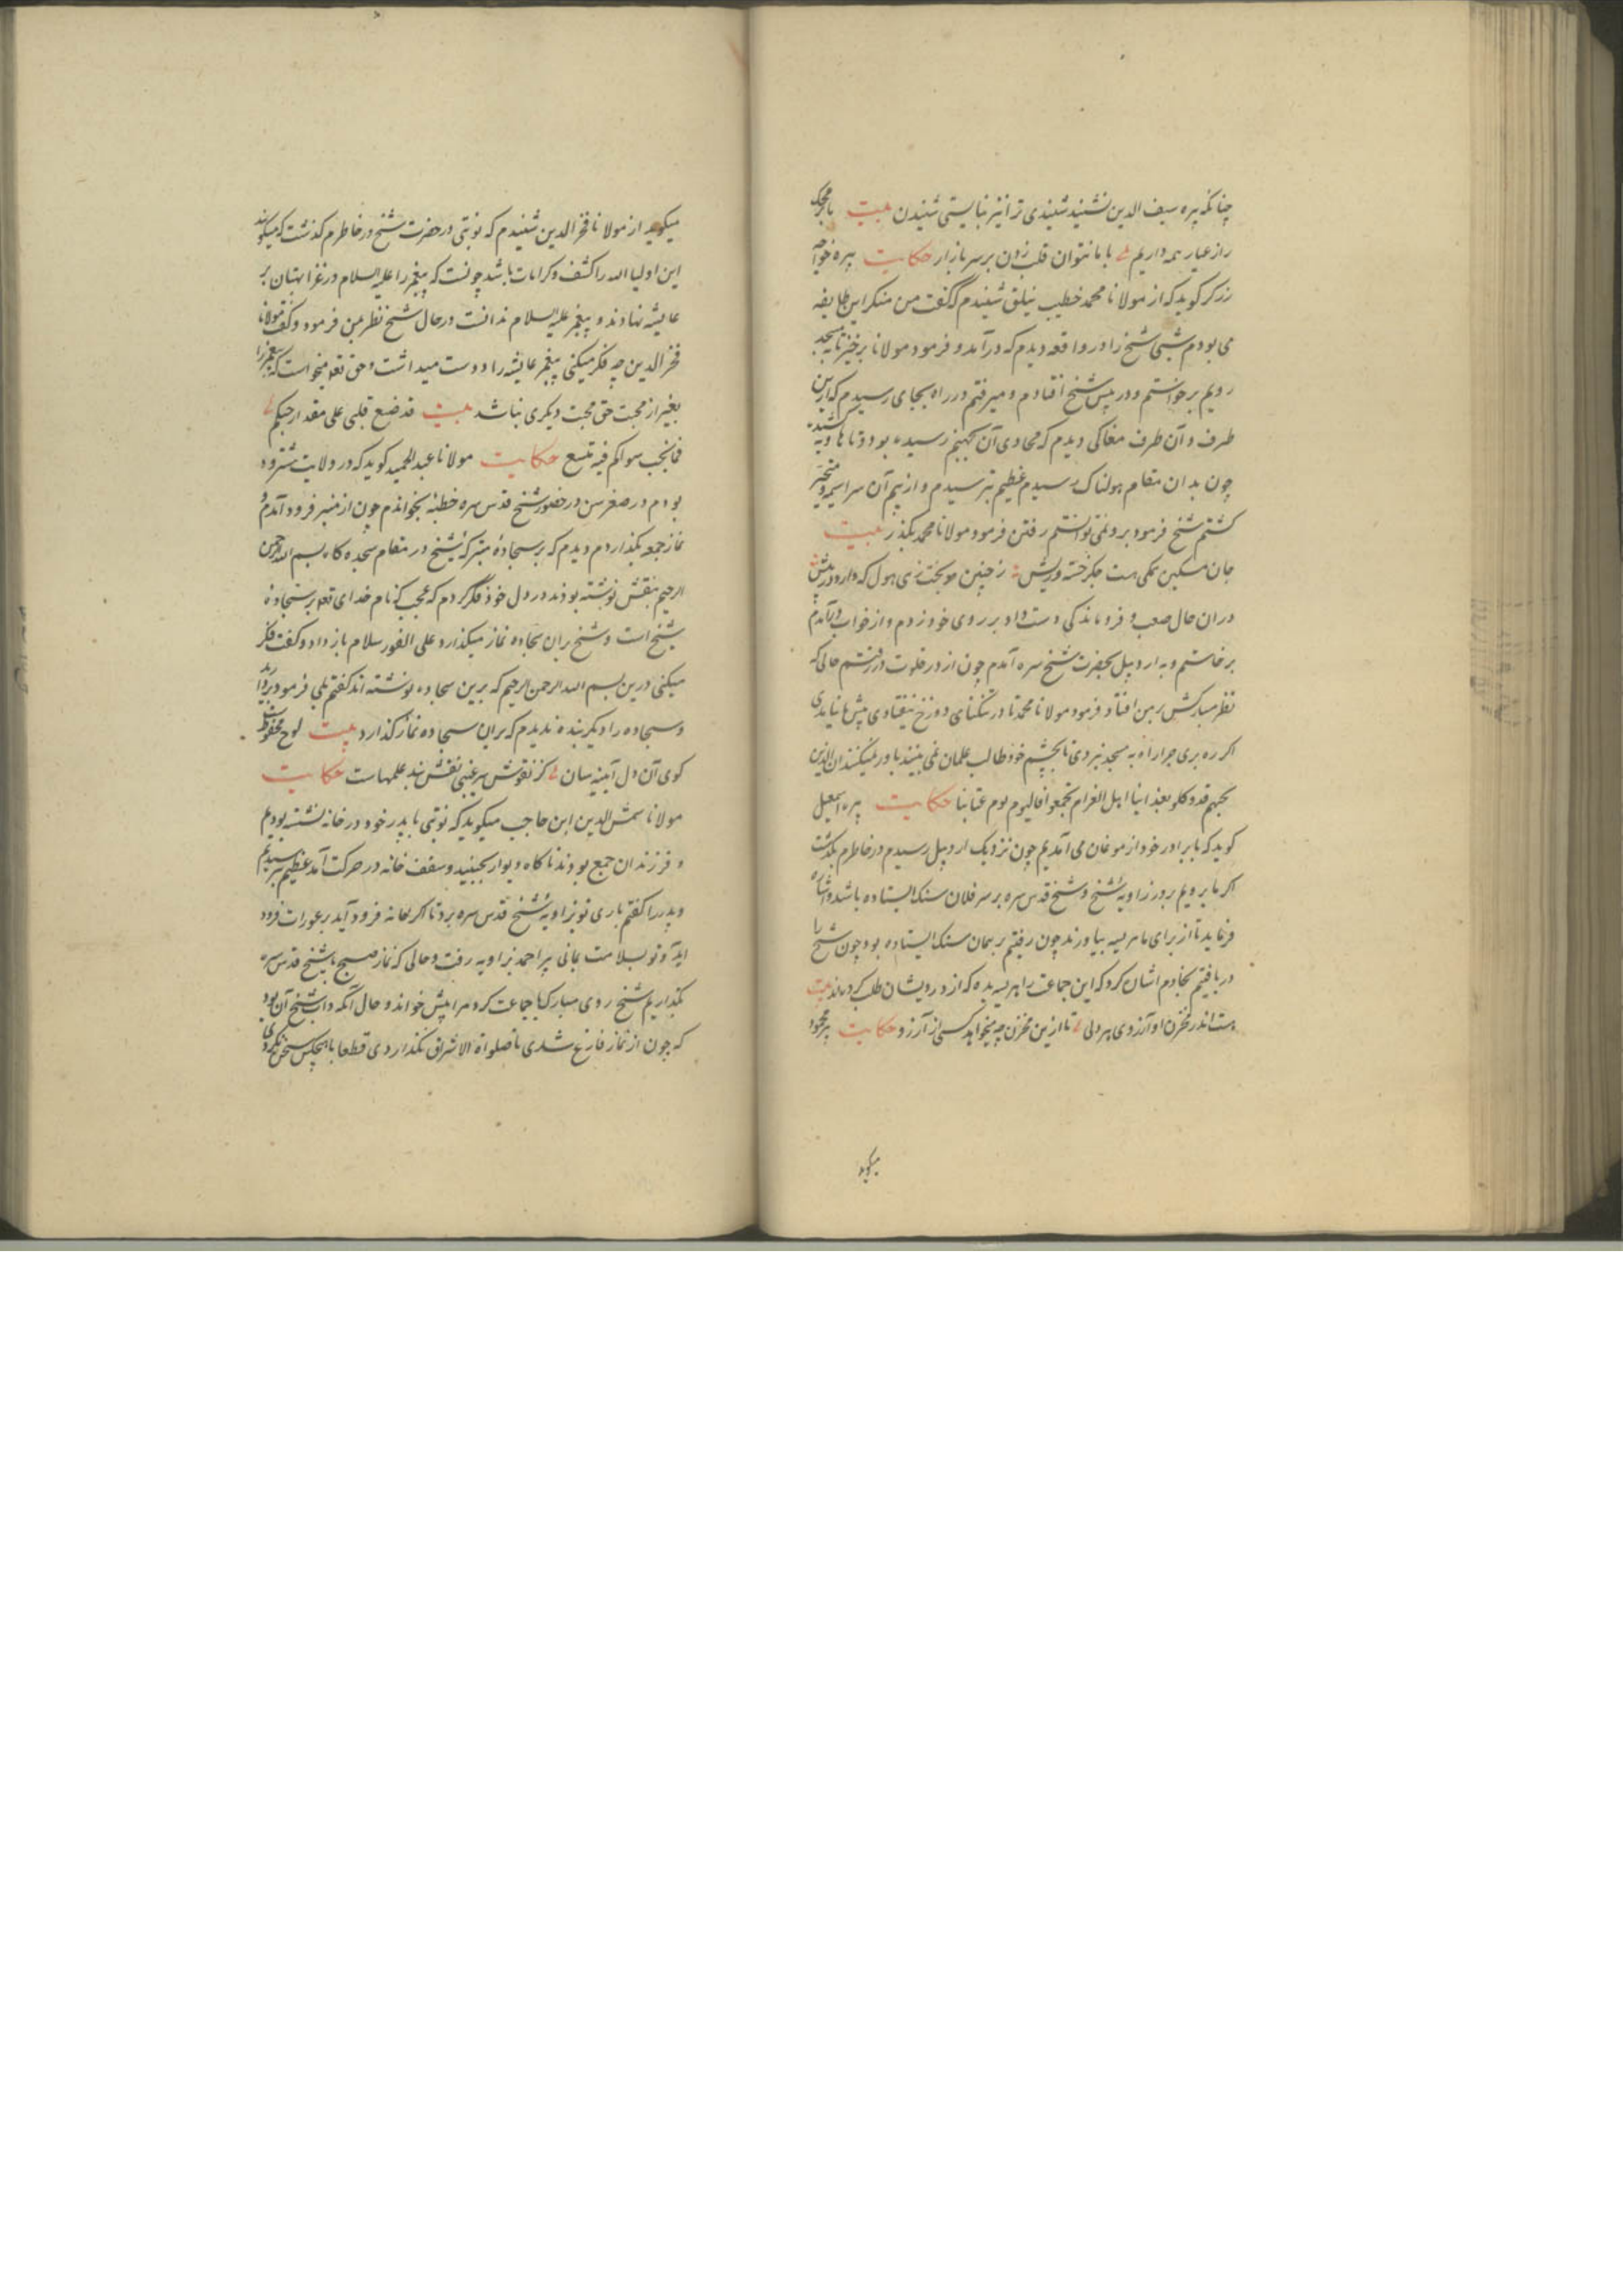 چنانکه پیره سیف الدین نشنید شنیدی ترا نیز نبایستی شنیدن بیت با محک
راز عیار همه داریم با ما نتوان قلب زدن بر سر بازار حکایت پیره خواجه
زرکر کوید که از مولانا محمد خطیب نیلق شنیدم که گفت من منکر این طایفه
می بودم شبی شیخ را در واقعه دیدم که درآمد و فرمود مولانا برخیز تا به مسجد
رویم برخواستم و در پیش شیخ افتادم و میرفتم در راه بجای رسیدم که ازین
طرف و آن طرف مغاکی دیدم که محاذی آن بجهنم رسیده بود و تا هاویه کشیده
چون بدان مقام هولناک رسیدم عظیم بترسیدم و از بیم آن سراسیمه و متحیر
کشتم شیخ فرمود برو نمی توانستم رفتن فرمود مولانا محمد بکذر بیت
جان مسکین بمکی هست جکر خسته و ریش ز چنین هول که دارد در پیش
در ان حال صعب و فروماندکی دست داد بر روی خود زدم و از خواب درآمدم
برخاستم و به اردبیل بحضرت شیخ سره آمدم چون از در خلوت در رفتم حالی که
نظر مبارکش بر من افتاد فرمود مولانا محمد تا در تنکنای دوزخ نیفتادی پیش ما نیامدی
اکر ره بری چرا راه به مسجد نبردی تا بچشم خود طالب علمان نمی بینند باور نمیکنند ان الذین
بحبهم قد وکلو بعذابنا اهل الغرام تجمعوا فالیوم یوم عتابنا حکایت پیره اسمعیل
کوید که با برادر خود از موغان می آمدیم چون نزدیک اردبیل رسیدم در خاطرم بکذشت
اکر ما برویم بروز زاویه شیخ و شیخ قدس سره بر سر فلان سنک ایستاده باشد و اشارة
فرماید تا از برای ما هریسه بیاورند چون رفتیم بر همان سنک ایستاده بود چون شیخ را
دریافتیم بخادم اشان کرد که این جماعت را هریسه بده که از درویشان طلب کرده اند بیت
هست اندر مخزن او آرزوی هر دلی تا ازین مخزن چه میخواهد کسی از آرزو حکایت پیر محمود
میکوید
میکوید از مولانا فخر الدین شنیدم که نوبتی در حضرت شیخ در خاطرم کذشت که میکویند
این اولیا الله را کشف و کرامات باشد چونست که پیغمبر را علیه السلام در غزا بهتان بر
عایشه نهادند و پیغمبر علیه السلام ندانست در حال شیخ نظر بمن فرمود و گفت مولانا
فخر الدین چه فکر میکنی پیغمبر عایشه را دوست میداشت و حق تعه میخواست که پیغمبر را
بغیر از محبت حق محبت دیکری نباشد بیت قد ضع قلبی علی مقدار حبکم
فما لحب سواکم فیه متسع حکایت مولانا عبد الحمید کوید که در ولایت شرود
بودم در صغر سن در حضور شیخ قدس سره خطبه بخواندم چون از منبر فرود آمدم و
نماز جمعه بکذاردم دیدم که بر سجاده متبرکه شیخ در مقام سجده کاه بسم الله الرحمن
الرحیم بنقش نوشته بودند در دل خود فکر کردم که عجب که نام خدای تعه بر سجاده
شیخ است و شیخ بران سجاده نماز میکذارد علی الفور سلام باز داد و کفت فکر
میکنی درین بسم الله الرحمن الرحیم که برین سجاده نوشته اند کفتم بلی فرمود بردارند
و سجاده را دیکر بنده ندیدم که بران سجاده نماز کذارد بیت لوح محفوظست
کوی آن دل آیینه سان کز نقوش سر غیبی نقش بند علمهاست حکایت
مولانا شمس الدین ابن حاجب میکوید که نوبتی با پدر خود در خانه نشسته بودیم
و فرزندان جمع بودند ناکاه دیوار بجنبید و سقف خانه در حرکت آمد عظیم بترسیدیم
و پدر را کفتم باری تو بزاویه شیخ قدس سره برو تا اکر خانه فرود آید بر عورات فرود
اید و تو بسلامت بمانی پیر احمد بزاویه رفت و حالی که نماز صبح با شیخ قدس سره
بکذاریم شیخ روی مبارک با جماعت کرد مرا پیش خواند و حال آنکه داب شیخ آن بود
که چون از نماز فارغ شدی تا صلواة الاشراق نکذاردی قطعا با هیچکس سخن نکردی